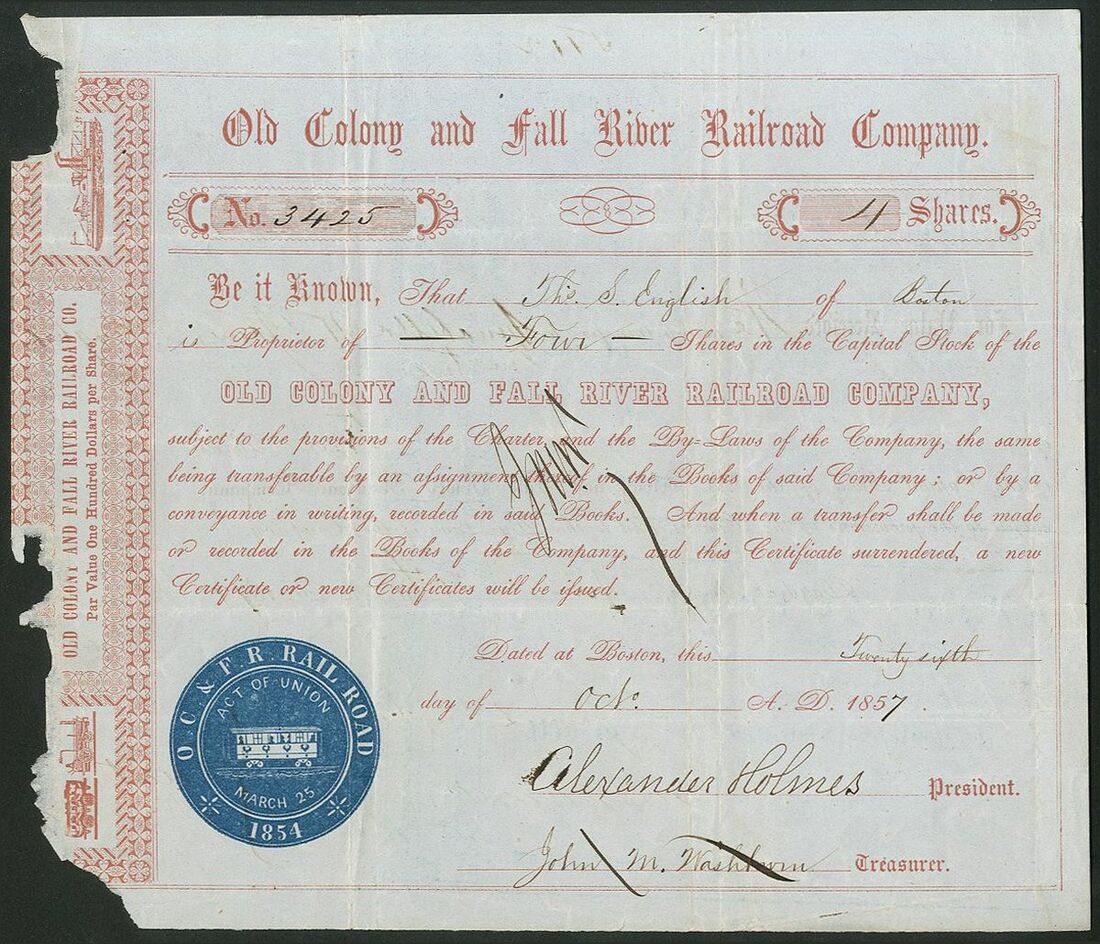 Old Colony and Fall River Railroad Company.
No. 3425
4 Shares.
Be it Known, That Thos. S. English of Boston
is Proprietor of — Four — Shares in the Capital Stock of the
OLD COLONY AND FALL RIVER RAILROAD COMPANY,
subject to the provisions of the Charter, and the By=Laws of the Company, the same
being transferable by an assignment thereof in the Books of said Company; or by a
conveyance in writing, recorded in said Books. And when a transfer shall be made
or recorded in the Books of the Company, and this Certificate surrendered, a new
Certificate or new Certificates will be issued.
Dated at Boston, this Twenty sixth
day of Octo. A. D. 1857.
Alexander Holmes President.
John M. Washburn Treasurer.
OLD COLONY AND FALL RIVER RAILROAD CO.
Par Value One Hundred Dollars per Share.
O. C. & F. R. RAIL ROAD
ACT OF UNION
MARCH 25
1854